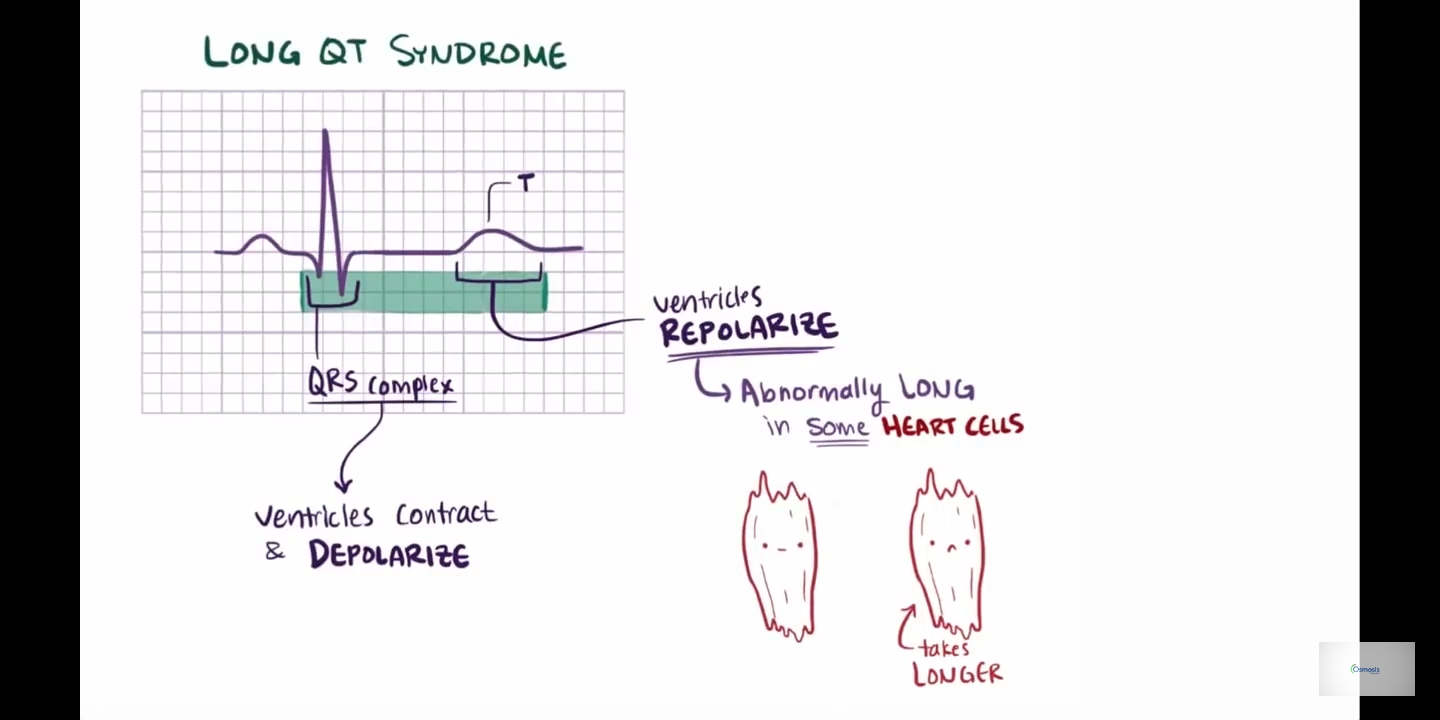 LONG QT SYNDROME
T
QRS complex
ventricles contract
& DEPOLARIZE
ventricles
REPOLARIZE
Abnormally LONG
in some HEART CELLS
takes
LONGER
Osmosis